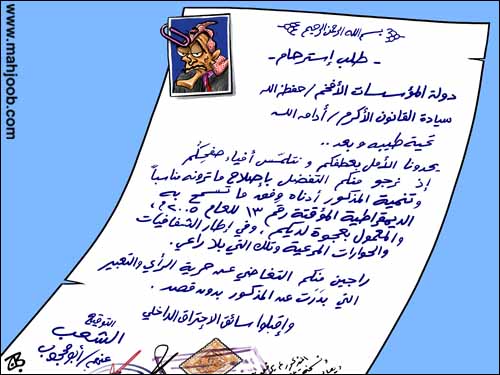 www.mahjoob.com
بسم الله الرحمن الرحيم
- طلب إسترحام -
دولة المؤسسات الأفخم / حفظه الله
سيادة القانون الأكرم / أدامه الله
تحية طيبة وبعد ..
يحدونا الأمل بعطفكم ونتلمس أفياء صفحِكُم
إذ نرجو منكم التفضل بإصلاح ما ترونه مناسباً
وتنمية المذكور أدناه وفقه ما تسمح به
الديمقراطية المؤقتة رقم ١٣ للعام ٢٠٠٥،
والمعمول بعجوة لديكم، وفي إطار الشفافيات
والحوارات المرعية وتلك التي بلا راعي.
راجين منكم التغاضي عن حرية الرأي والتعبير
التي بدرت عن المذكور بدون قصد.
وإقبلوا سائق الإحتراق الداخلي
التوقيع
الشعب
عنهم / أبو محجوب